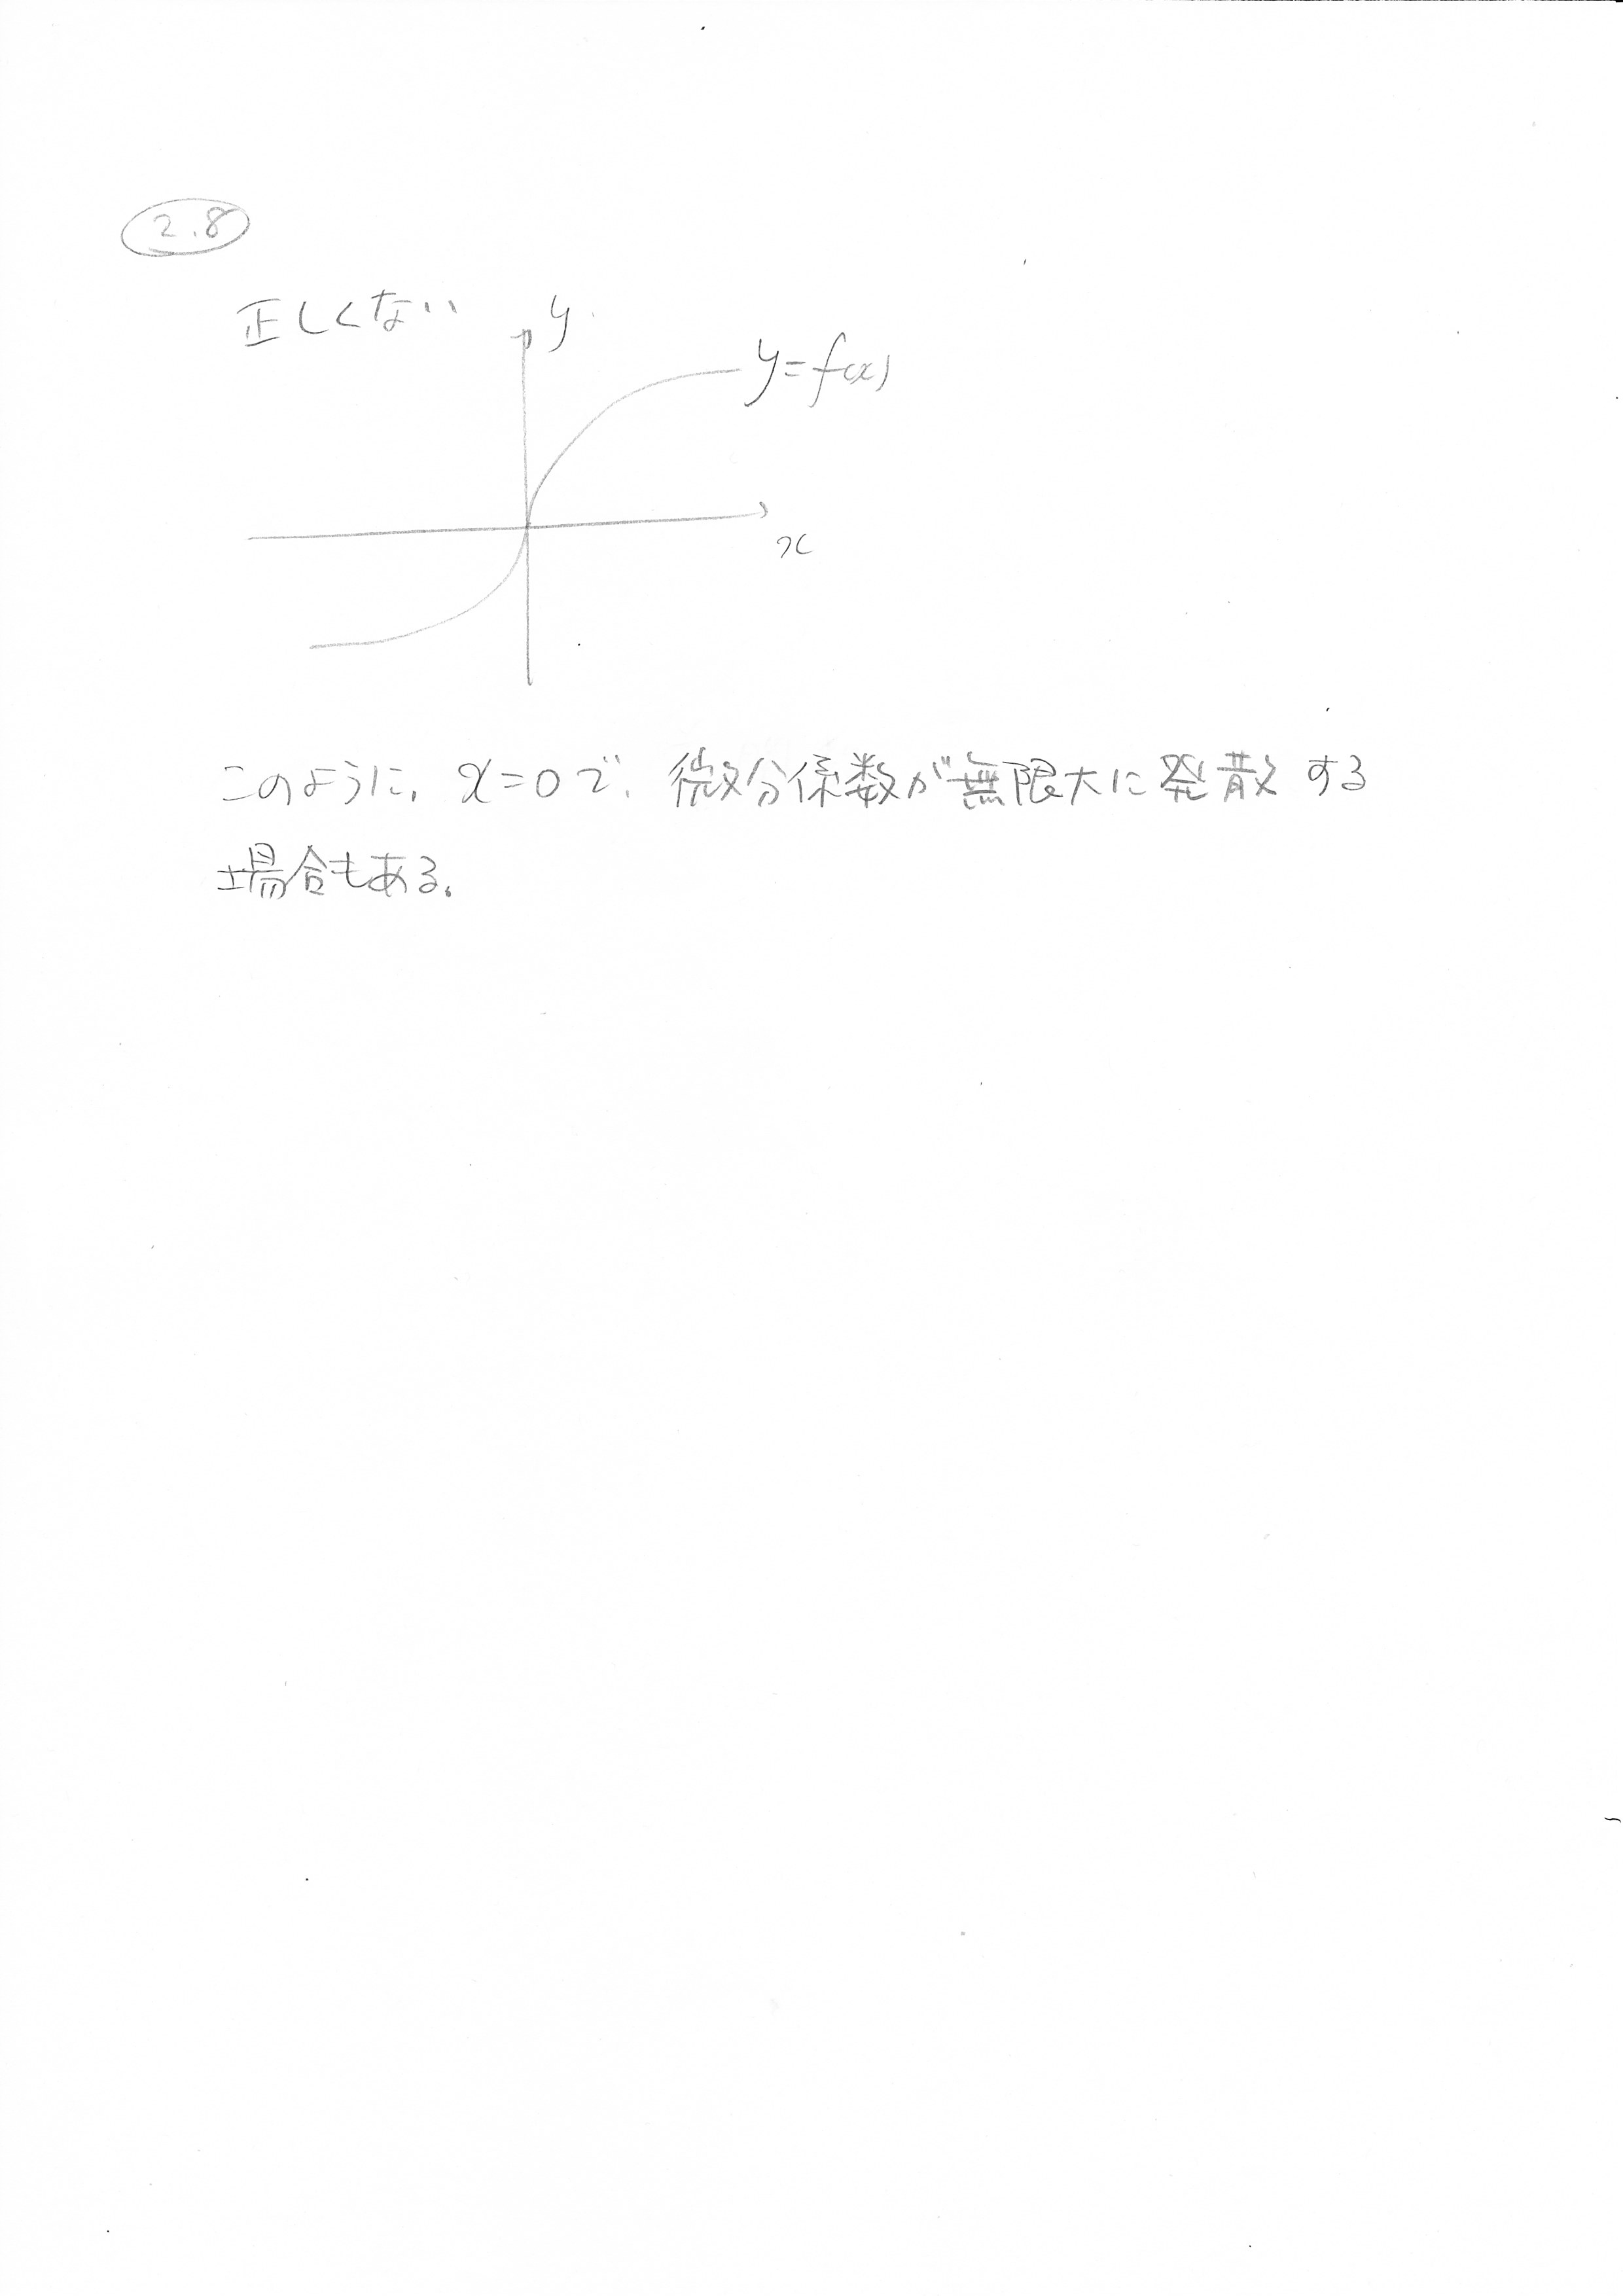 2.8
正しくない
y
y=f(x)
x
このように、x=0で、微分係数が無限大に発散する
場合もある。